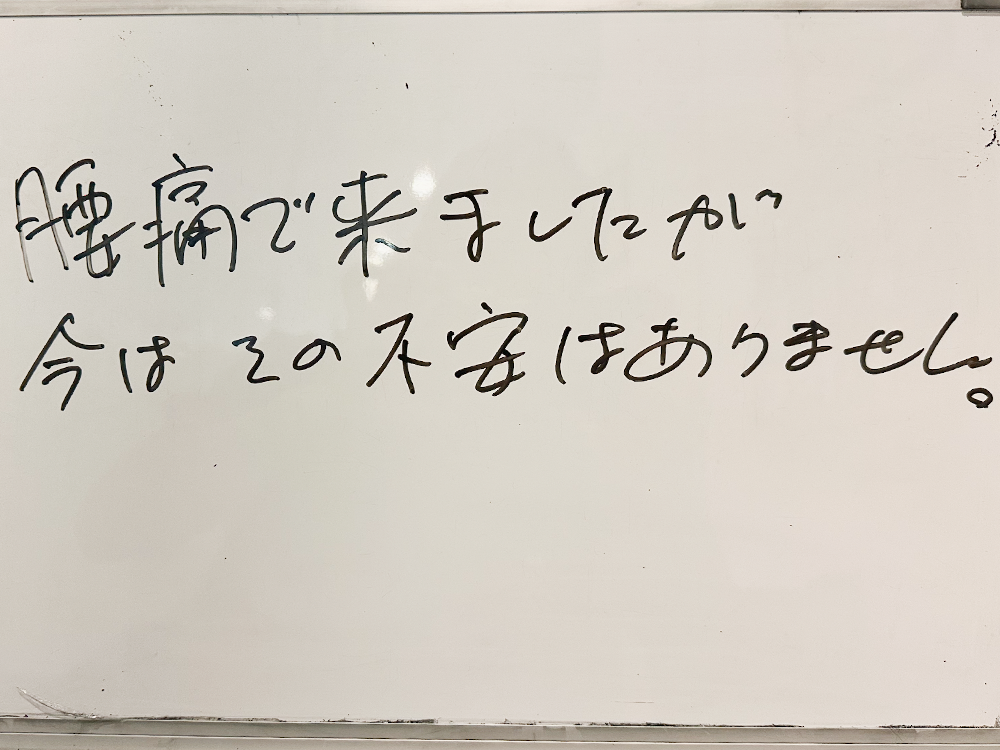 腰痛で来ましたが
今はその不安はありません。